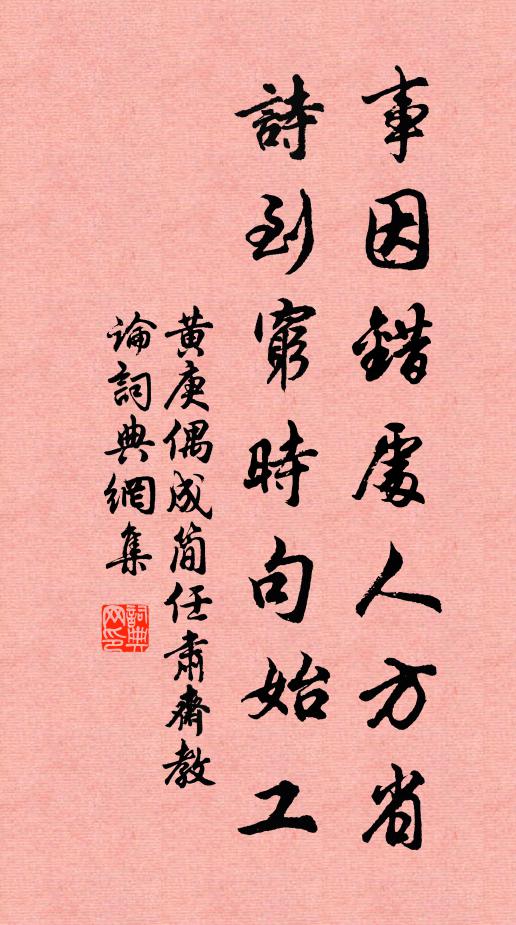 事因錯處人方省
詩到窮時句始工
黃庚偶成簡任肅齋教
論詞典網集
詞典網印